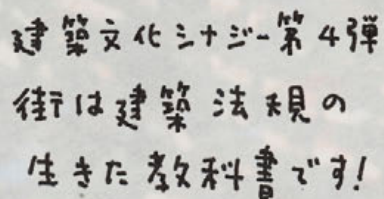 建築文化シナジー第4弾
街は建築法規の
生きた教科書です!